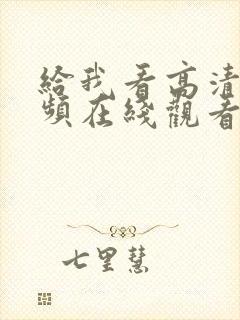 給我看高清
頻在綫觀看
七里慧